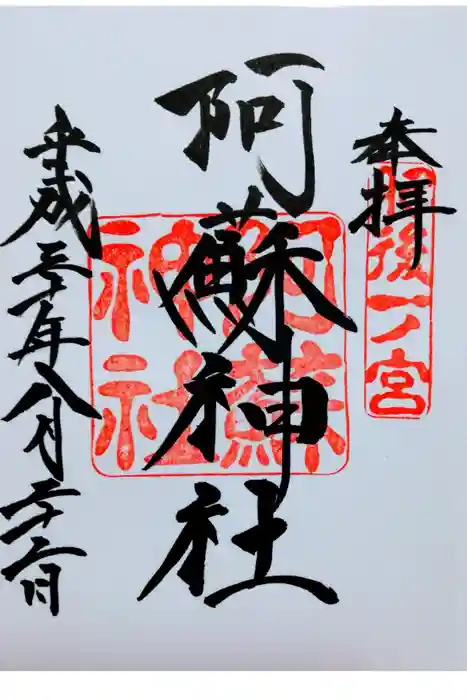 奉拝
肥後一ノ宮
阿蘇神社
阿蘇神社
平成三十年八月二十六日